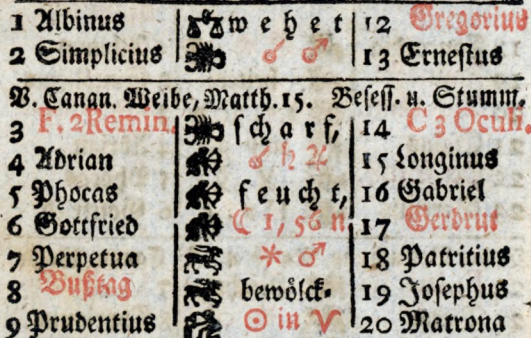 1 Albinus ♎ wehet 12 Gregorius
2 Simplicius ♏ ☌ ♂ 13 Ernestus
V. Canan. Weibe, Matth. 15. Besess. u. Stumm.
3 F. 2 Remin. ♏ scharf, 14 C 3 Oculi.
4 Adrian ♐ ☌ ♄ ♃ 15 Longinus
5 Phocas ♐ feucht, 16 Gabriel
6 Gottfried ♐ ☾ 1, 56 n 17 Gerdrut
7 Perpetua ♑ ⚹ ♂ 18 Patritius
8 Bußtag ♑ bewölck⸗ 19 Josephus
9 Prudentius ☉ in ♈ 20 Matrona